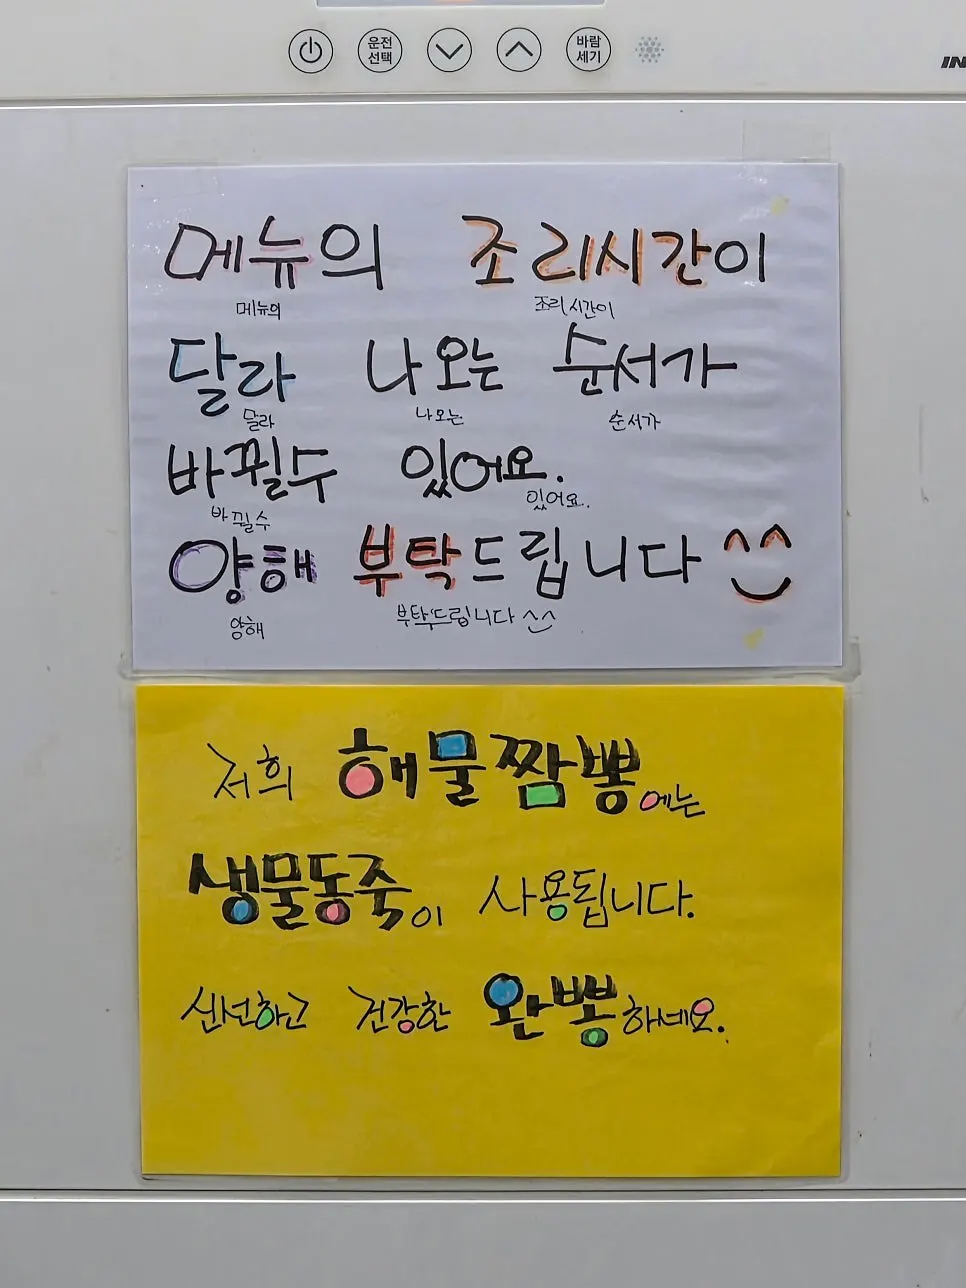 운전
선택
바람
세기
메뉴의 조리시간이
메뉴의 조리시간이
달라 나오는 순서가
달라 나오는 순서가
바뀔수 있어요.
바뀔수 있어요.
양해 부탁드립니다 ^^
양해 부탁드립니다 ^^
저희 해물짬뽕에는
생물동죽이 사용됩니다.
신선하고 건강한 완뽕하세요.